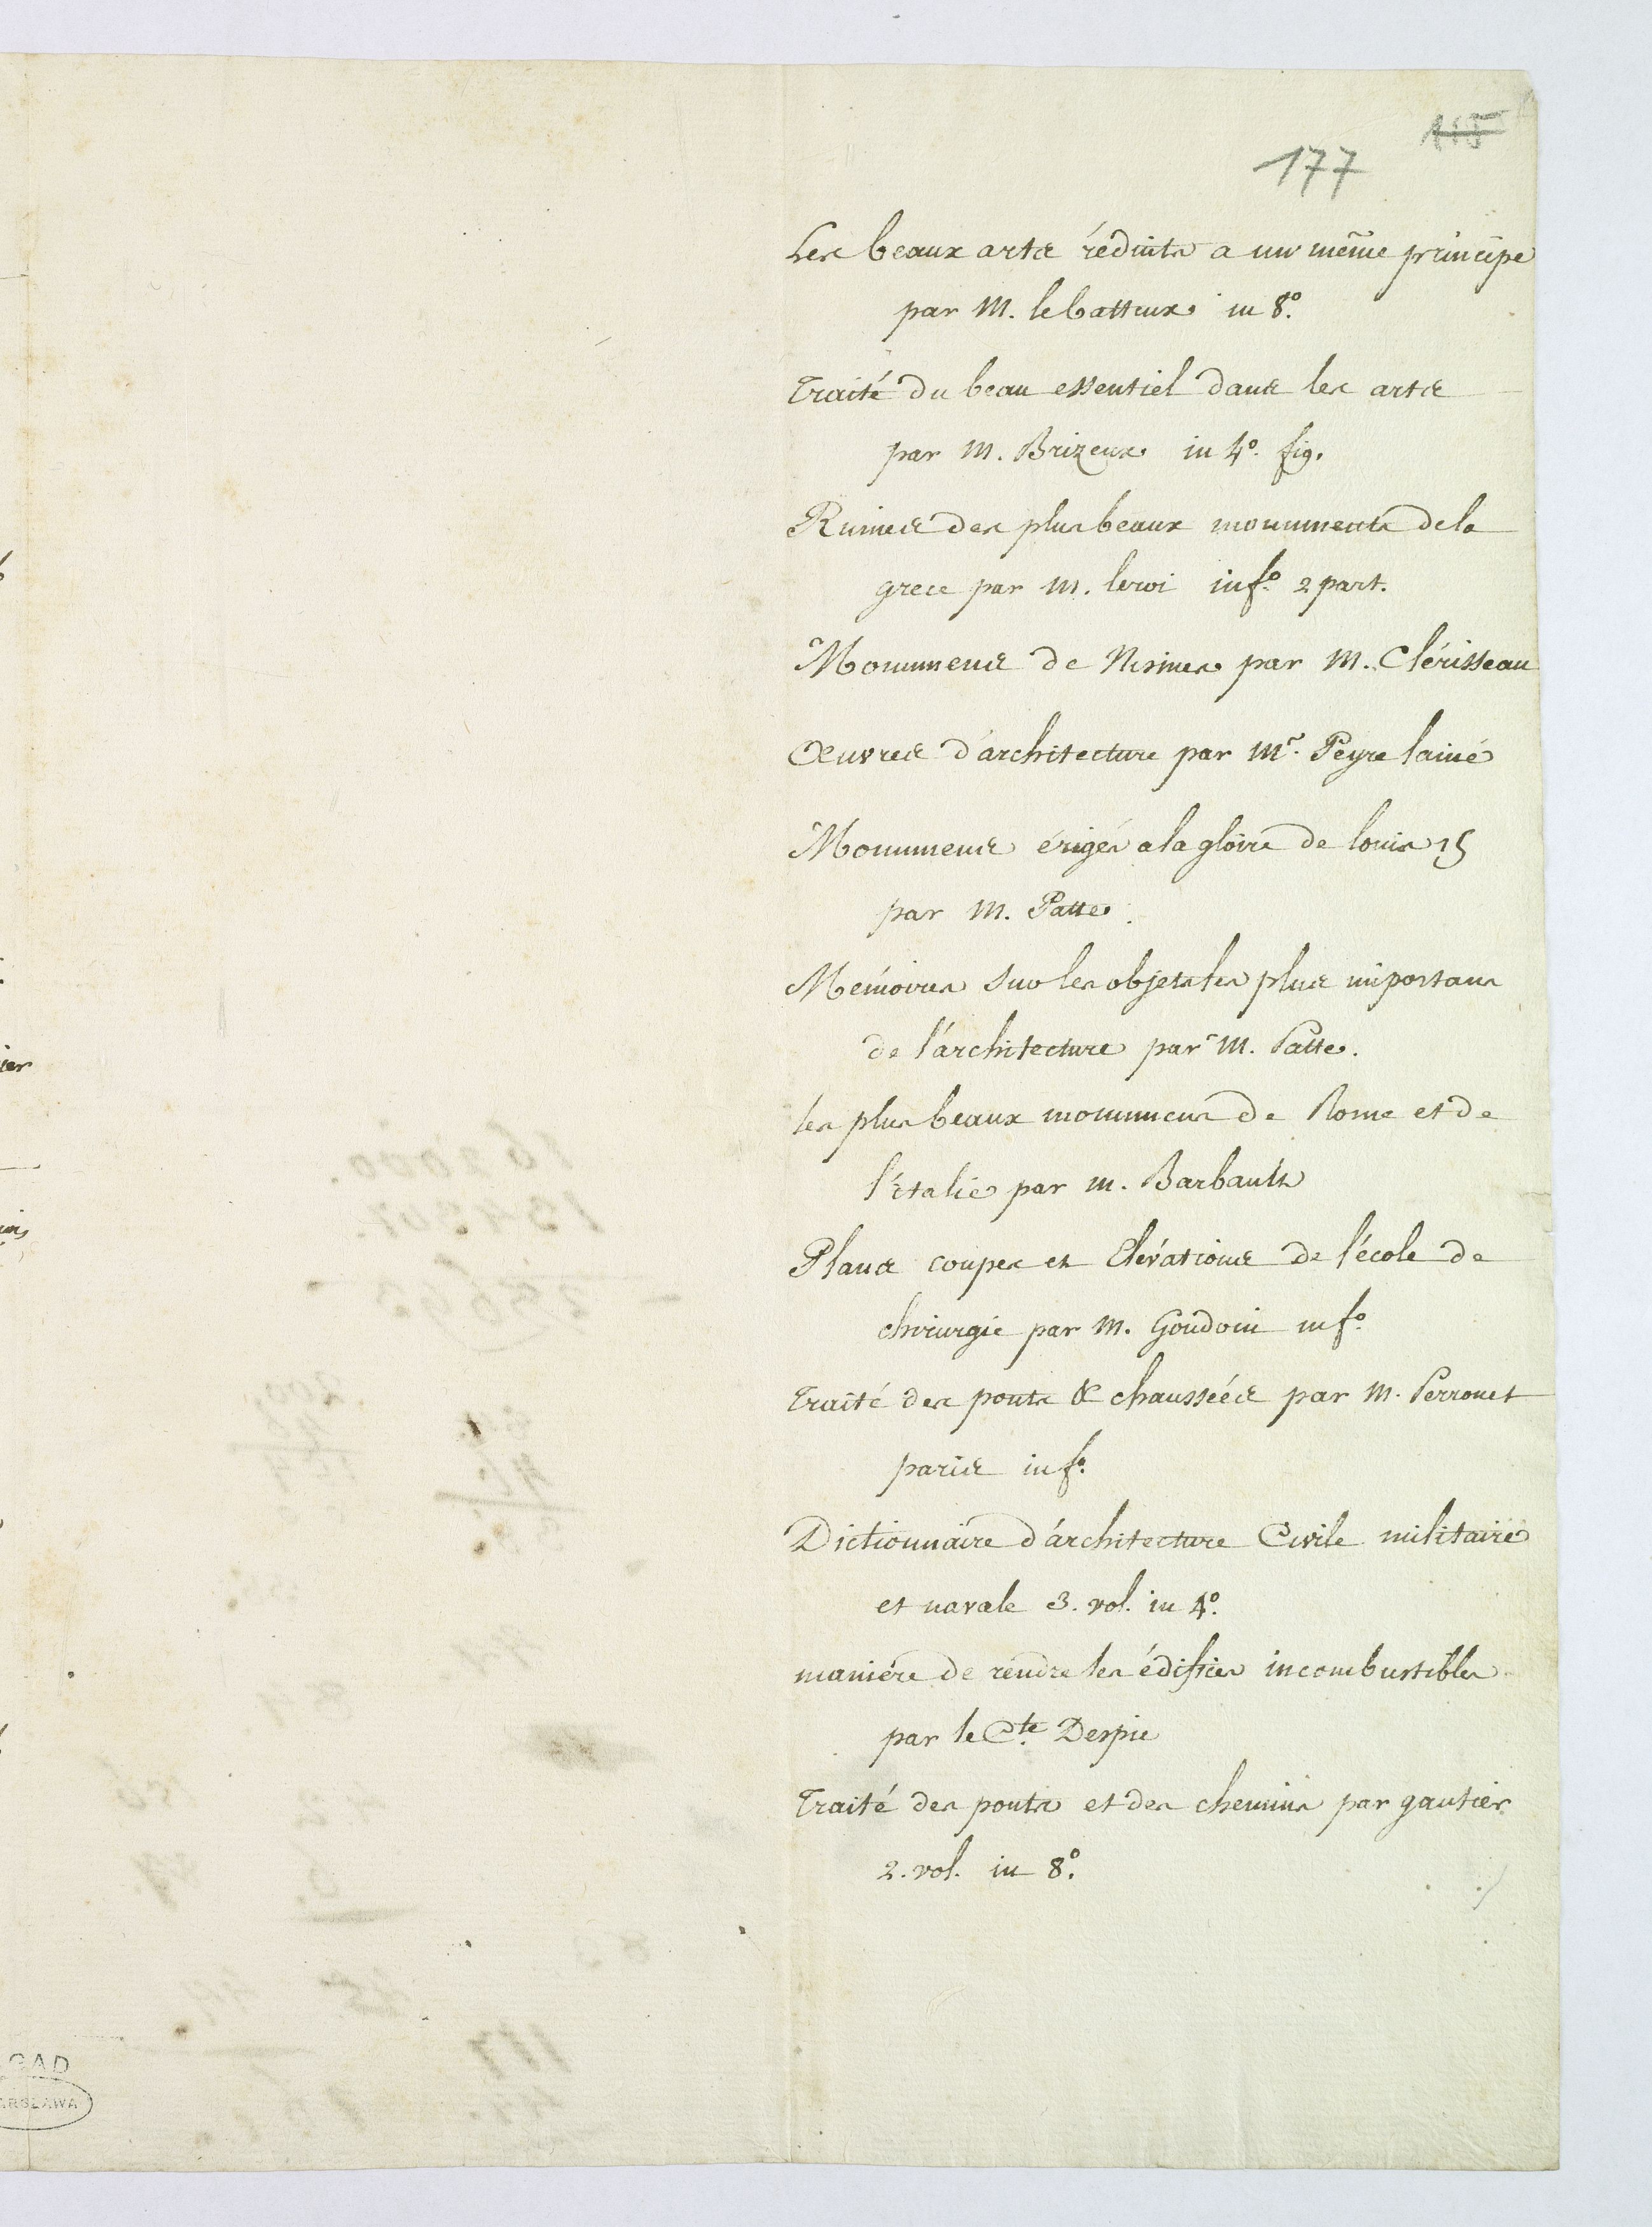 115
177
Les beaux arts réduits a un même principe
par M. le batteux in 8.º
Traité du beau essentiel dans les arts
par M. Brizeux in 4º. fig.
Ruines des plus beaux monuments de la
grece par M. leroi in fº. 2 part.
Monumens de Nismes par M. Clérisseau
Œuvres d'architecture par Mr. Peyre lainé
Monumens érigés a la gloire de louis 15
par M. Patte.
Mémoires sur les objets les plus importans
de l'architecture par M. Patte.
les plus beaux monumens de Rome et de
l'italie par M. Barbault
Plans coupes et Elévations de l'école de
chirurgie par M. Gondoin in fº.
Traité des ponts & chaussées par M. Perronet
paris in fº.
Dictionnaire d'architecture Civile militaire
et navale 3. vol. in 4º.
maniére de rendre les édifices incombustibles
par le Cte. Despie
Traité des ponts et des chemins par gautier
2. vol. in 8º.